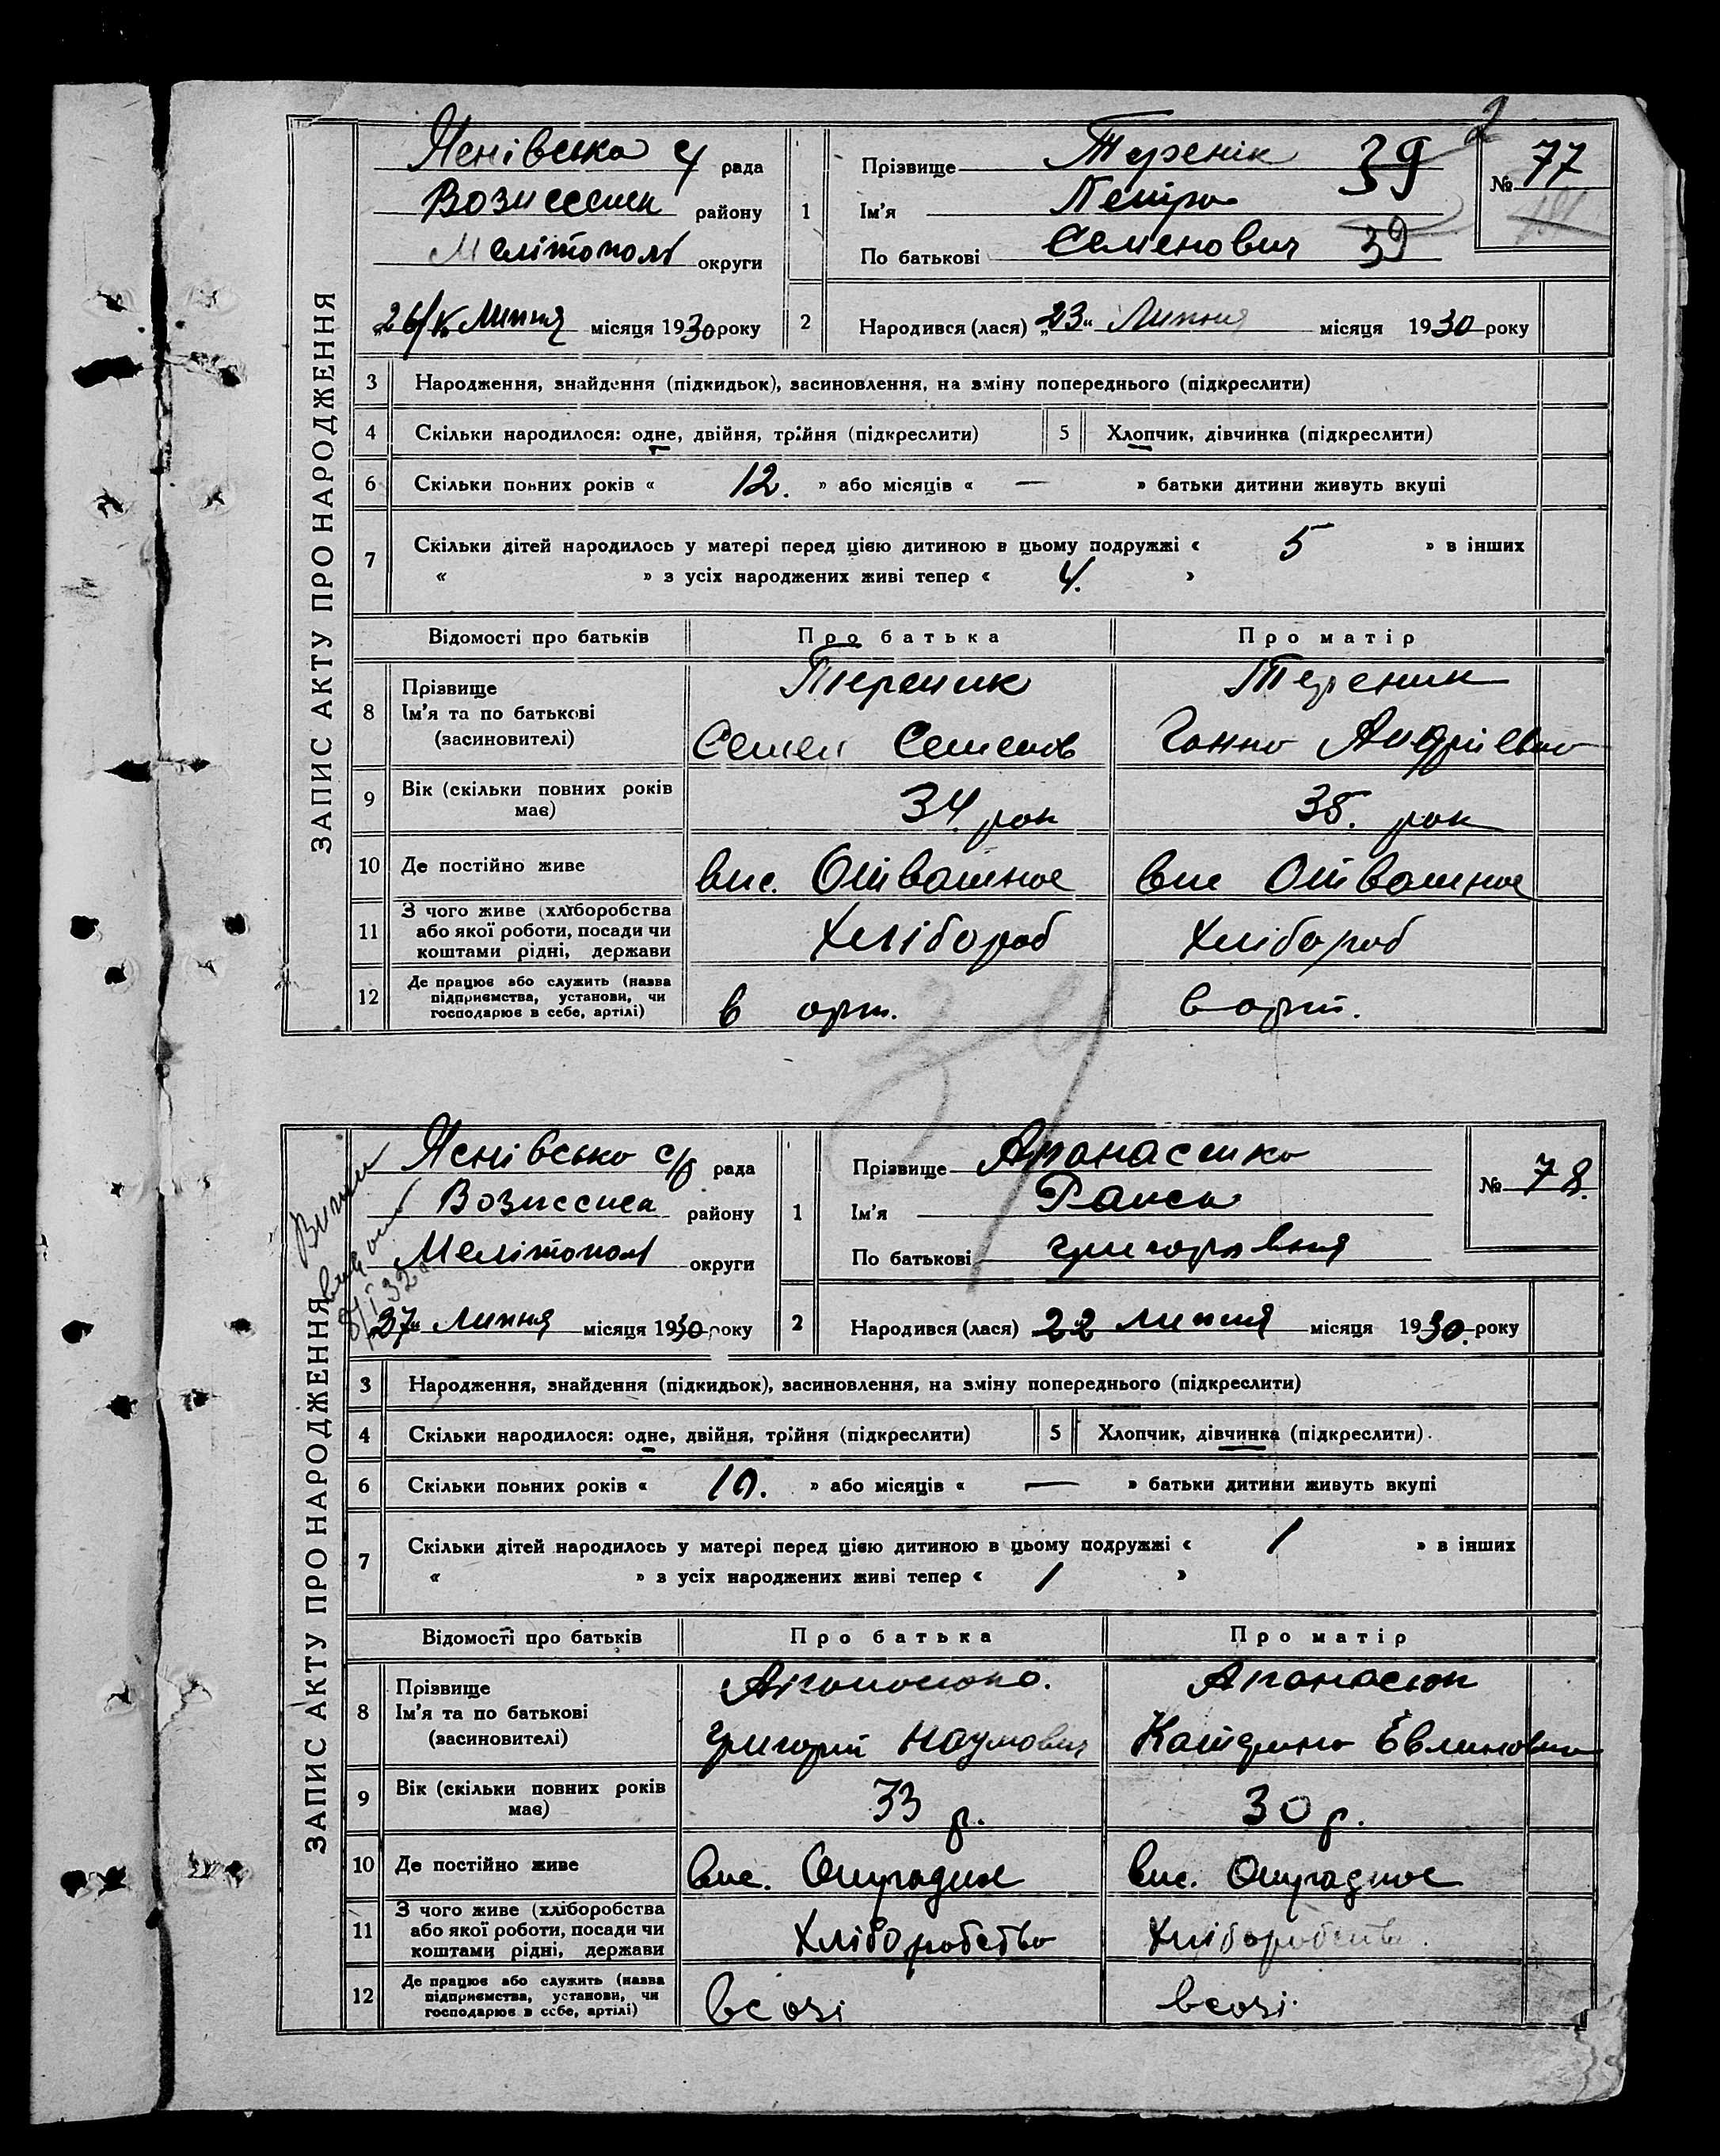 ЗАПИС АКТУ ПРО НАРОДЖЕННЯ
Ясенівська с/ рада
Вознесенськ району
Мелітопол округи
„26/ Липня місяця 1930 року
1 Прізвище Теренік 39
Ім'я Петро
По батькові Семенович 39
2
№ 77
2 Народився (лася) „23“ Липня місяця 1930 року
3 Народження, знайдення (підкидьок), засиновлення, на зміну попереднього (підкреслити)
4 Скільки народилося: одне, двійня, трійня (підкреслити) 5 Хлопчик, дівчинка (підкреслити)
6 Скільки повних років « 12. » або місяців « — » батьки дитини живуть вкупі
7 Скільки дітей народилось у матері перед цією дитиною в цьому подружжі « 5 » в інших
« » з усіх народжених живі тепер « 4. »
Відомості про батьків Про батька Про матір
8 Прізвище Ім'я та по батькові (засиновителі)
Тереник Тереник
Семен Семенов Ганна Андріевна
9 Вік (скільки повних років має) 34 рок 35. рок
10 Де постійно живе вис. вис
11 З чого живе (хліборобства або якої роботи, посади чи коштами рідні, держави Хлібороб Хлібороб
12 Де працює або служить (назва підприємства, установи, чи господарює в себе, артілі) в арт. в арт.
39
ЗАПИС АКТУ ПРО НАРОДЖЕННЯ
Ясенівсько с/р рада
Вознесенськ району
Мелітопол округи
„27“ Липня місяця 1930 року
1 Прізвище Апанасенко
Ім'я Раиса
По батькові Григорівня
№ 78.
2 Народився (лася) 22 липня місяця 1930. року
3 Народження, знайдення (підкидьок), засиновлення, на зміну попереднього (підкреслити)
4 Скільки народилося: одне, двійня, трійня (підкреслити) 5 Хлопчик, дівчинка (підкреслити).
6 Скільки повних років « 10. » або місяців « — » батьки дитини живуть вкупі
7 Скільки дітей народилось у матері перед цією дитиною в цьому подружжі « 1 » в інших
« » з усіх народжених живі тепер « 1 »
Відомості про батьків Про батька Про матір
8 Прізвище Ім'я та по батькові (засиновителі)
Григорий Наумович Катерина
9 Вік (скільки повних років має) 33 р. 30 р.
10 Де постійно живе вис. Отрадное вис. Отрадное
11 З чого живе (хліборобства або якої роботи, посади чи коштами рідні, держави Хліборобство Хліборобство
12 Де працює або служить (назва підприємства, установи, чи господарює в себе, артілі) в созі в созі.